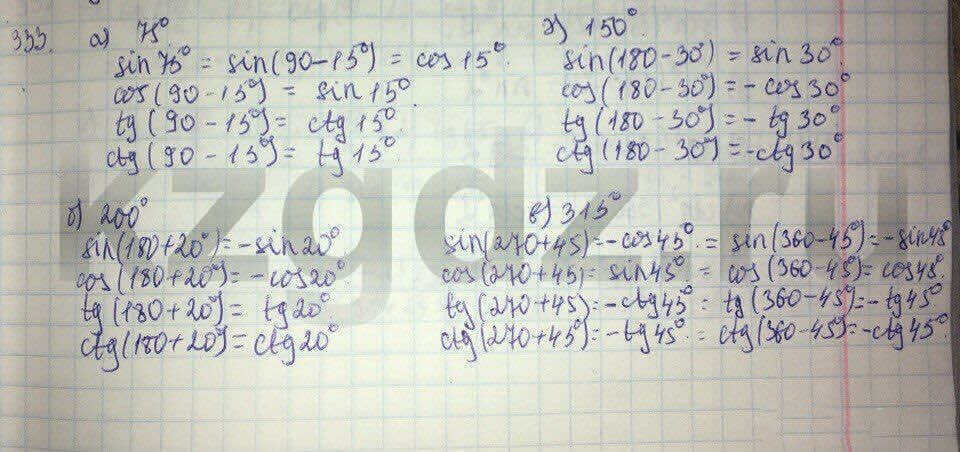 333. а) 75°
sin 75° = sin(90-15°) = cos 15°.
cos(90-15°) = sin 15°.
tg(90-15°) = ctg 15°.
ctg(90-15°) = tg 15°.
150°.
sin(180-30°) = sin 30°.
cos(180-30°) = -cos 30°
tg(180-30°) = -tg 30°
ctg(180-30°) = -ctg 30°
б) 200°
sin(180+20°) = -sin 20°
cos(180+20°) = -cos 20°.
tg(180+20°) = tg 20°
ctg(180+20°) = ctg 20°
в) 315°
sin(270+45) = -cos 45°. = sin(360-45°) = -sin 45°
cos(270+45) = sin 45° = cos(360-45°) = cos 45°.
tg(270+45) = -ctg 45° = tg(360-45°) = -tg 45°
ctg(270+45°) = -tg 45°. = ctg(360-45°) = -ctg 45°
kzgdz.ru